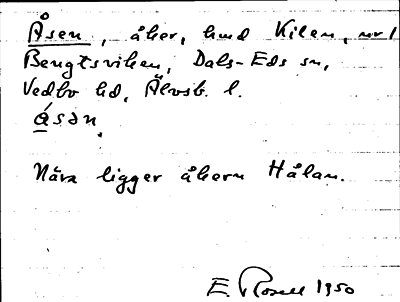 Åsen, åker, hmd Kilen, nr 1
Bengtsviken, Dals-Eds sn,
Vedbo hd, Älvsb. l.
åsən.
Nära ligger åkern Hålan.
E. Rosell 1950